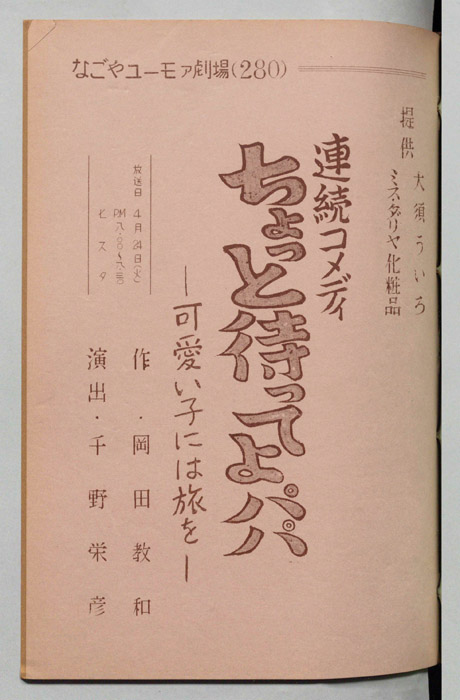 なごやユーモア劇場(280)
提供 大須ういろ
ミス・ダリヤ化粧品
連続コメディ
ちょっと待ってよパパ
―可愛い子には旅を―
放送日 4月24日(火)
PM八・〇〇〜八・三〇
七スタ
作・岡田教和
演出・千野栄彦